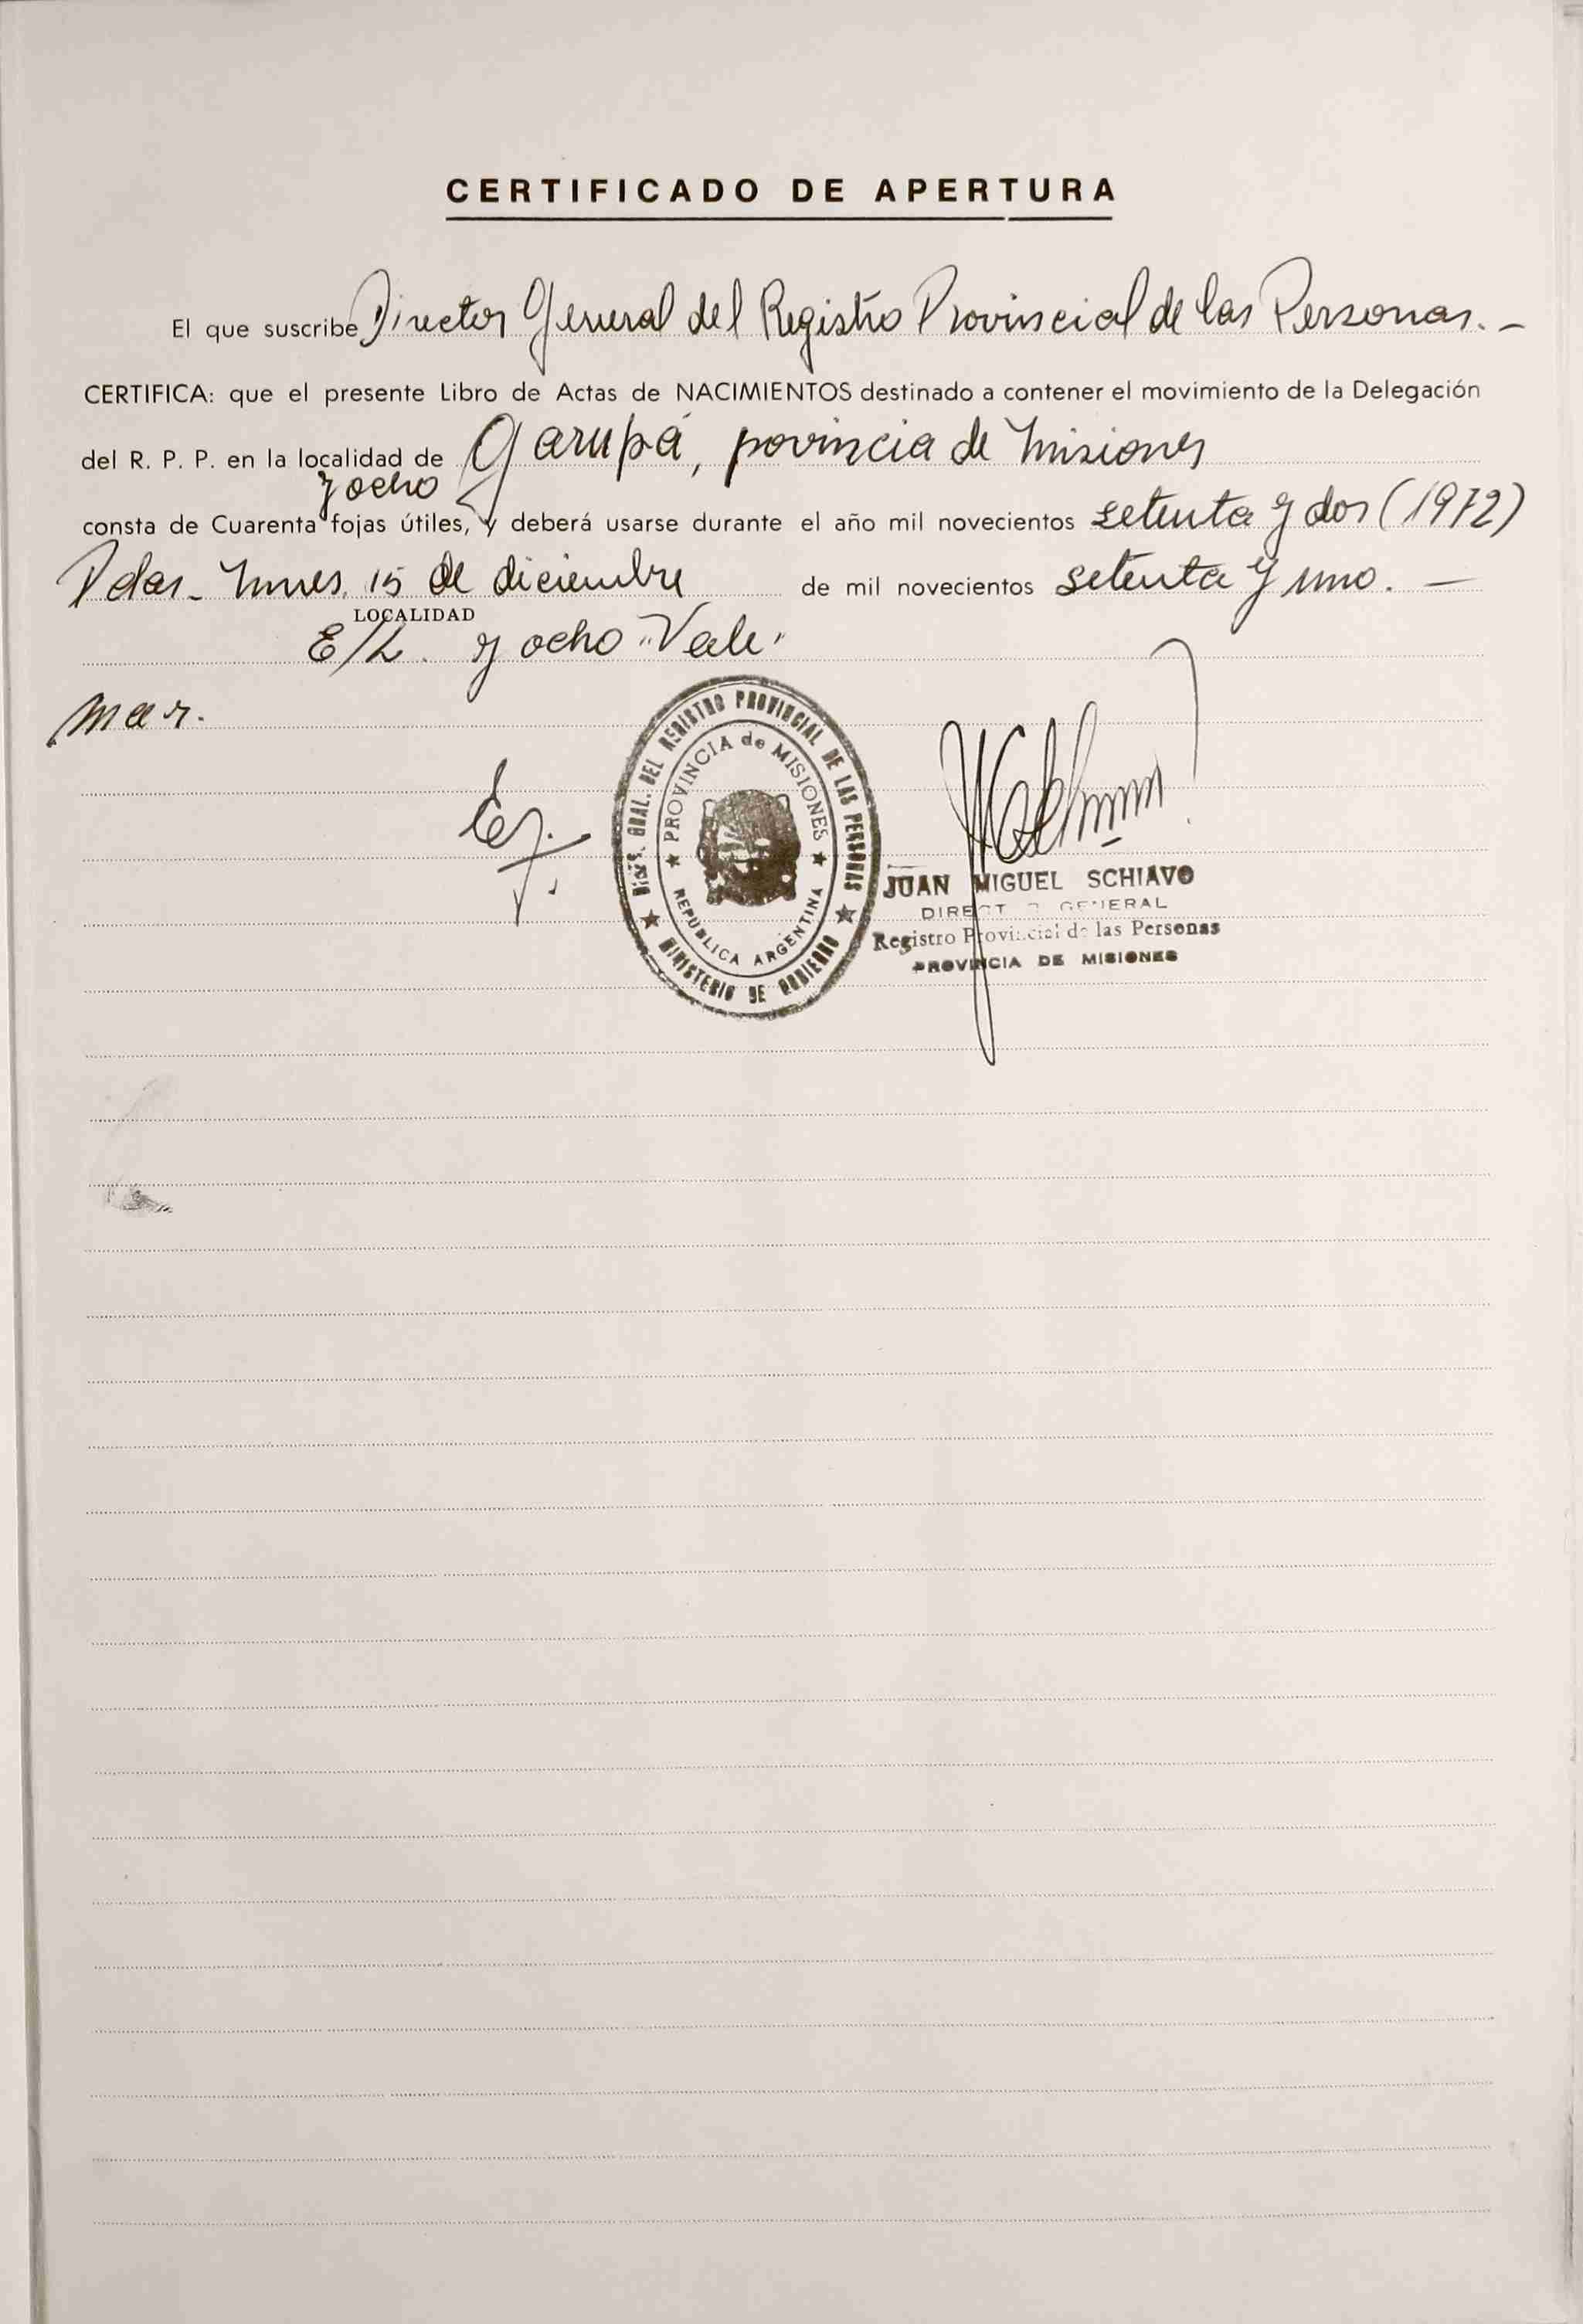 CERTIFICADO DE APERTURA
El que suscribe Director General del Registro Provincial de las Personas. -
CERTIFICA: que el presente Libro de Actas de NACIMIENTOS destinado a contener el movimiento de la Delegación
del R. P. P. en la localidad de Garupá, povincia de Misiones
y ocho
consta de Cuarenta fojas útiles, y deberá usarse durante el año mil novecientos setenta y dos (1972)
Pdas. Mnes. 15 de diciembre de mil novecientos setenta y uno. -
LOCALIDAD
E/L. y ocho "Vale"
mar.
DIREC. GRAL. DEL REGISTRO PROVINCIAL DE LAS PERSONAS
PROVINCIA de MISIONES
REPUBLICA ARGENTINA
MINISTERIO DE GOBIERNO
JUAN MIGUEL SCHIAVO
DIRECTOR GENERAL
Registro Provincial de las Personas
PROVINCIA DE MISIONES